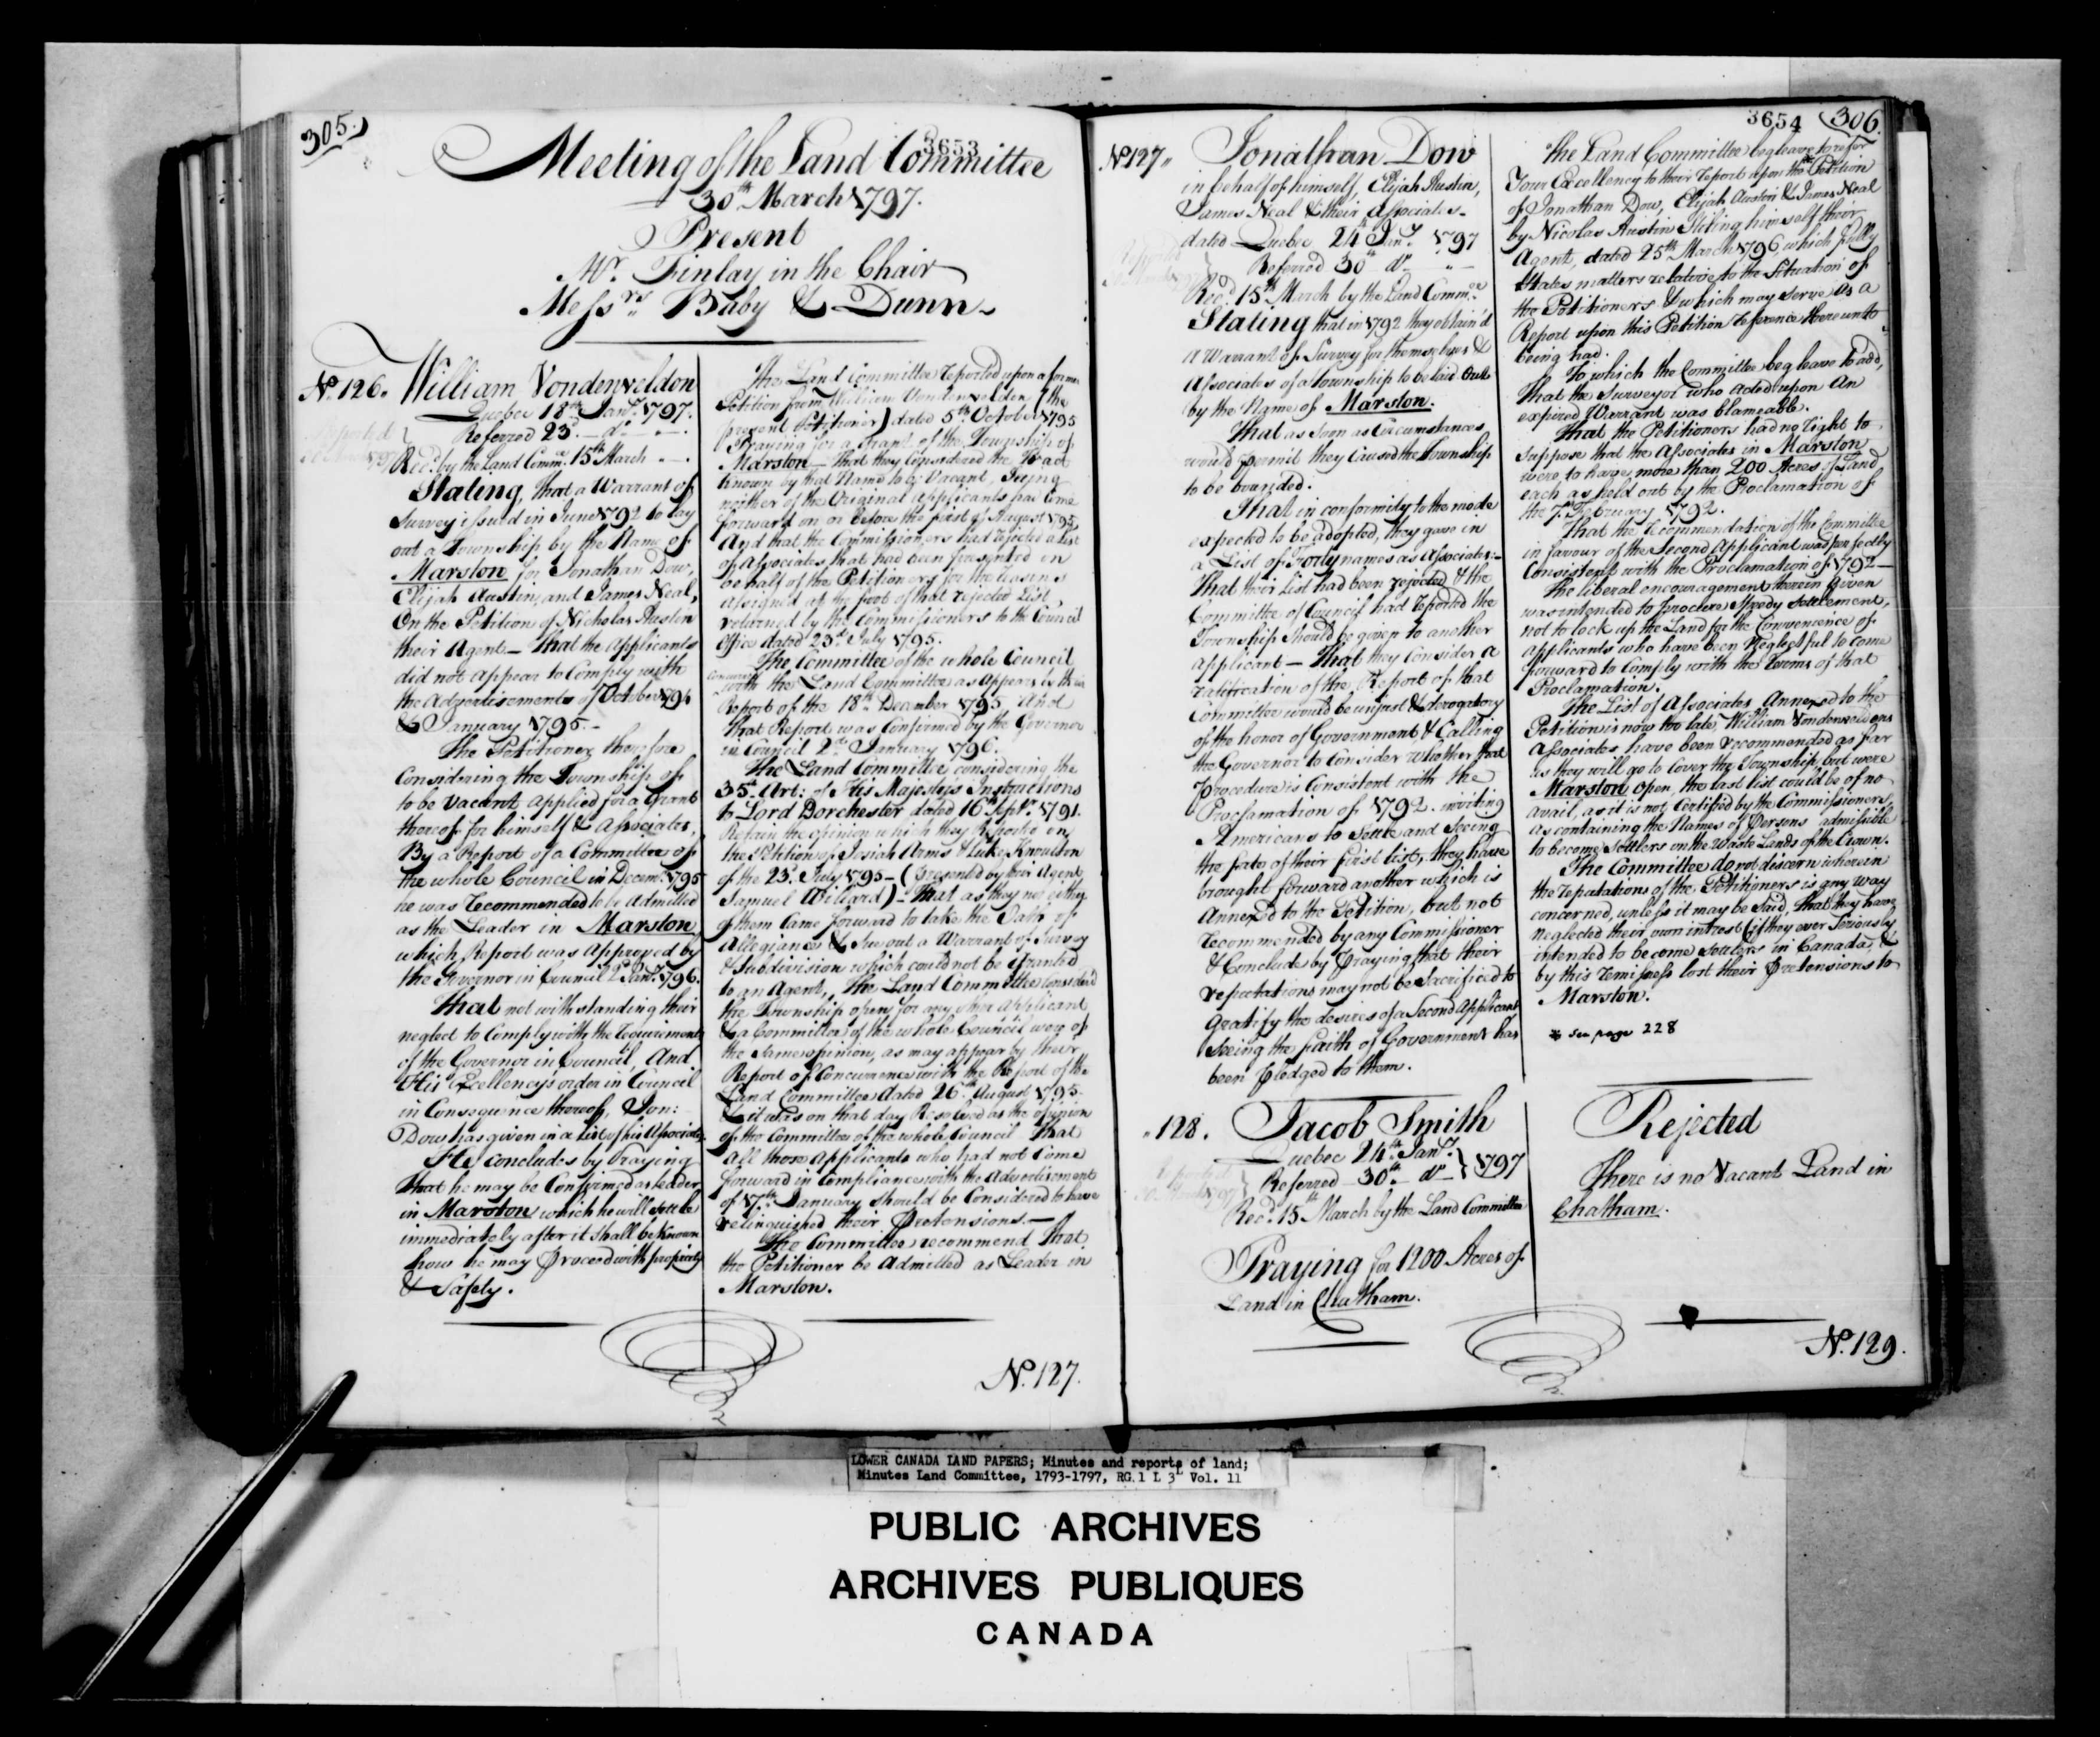 305.
3653
Meeting of the Land Committee
30th March 1797.
Present
Mr. Finlay in the Chair
Messrs. Baby & Dunn
No. 126. William Vondenveldon
Quebec 18th Jany. 1797.
Referred 23d. do "
Recd. by the Land Commee. 15th March "
Stating, that a Warrant of
Survey issued in June 1792 to lay
out a Township by the Name of
Marston for Jonathan Dow,
Elijah Austin, and James Neal,
On the Petition of Nicholas Austin
their Agent — That the Applicants
did not appear to Comply with
the Advertisements of October 1794
& January 1795 —
The Petitioner therefore
Considering the Township of
to be Vacant applied for a Grant
thereof for himself & Associates,
By a Report of a Committee of
the whole Council in Decemr. 1795
he was recommended to be Admitted
as the Leader in Marston
which Report was Approved by
the Governor in Council 2d Jany. 1796.
That not withstanding their
neglect to Comply with the requirements
of the Governor in Council And
His Excellencys order in Council
in Consequence thereof, Jon:
Dow has given in a list of his Associates.
He concludes by Praying
that he may be Confirmed as Leader
in Marston which he will settle
immediately after it shall be Known
how he may Proceed with propriety
& Safety.
The Land Committee reported upon a former
Petition from William Vondenvelden (the
present Petitioner) dated 5th October 1795
Praying for a Grant of the Township of
Marston — that they Considered the Tract
known by that Name to be Vacant, Seeing
neither of the Original Applicants had Come
forward on or before the first of August 1795,
And that the Commissioners had rejected a List
of Associates that had been presented on
behalf of the Petitioners for the reasons
Assigned at the foot of that rejected List
returned by the Commissioners to the Council
Office dated 23d July 1795.
The Committee of the whole Council
concurred
with the Land Committee as Appears by their
Report of the 18th December 1795 And
that Report was Confirmed by the Governor
in Council 2d January 1796.
The Land Committee considering the
35th Art: of His Majestys Instructions
to Lord Dorchester dated 16th Septr. 1791.
Retain the opinion which they Reported on
the Petition of Josiah Arms & Luke Knoulton
of the 23d July 1795 — (presented by their Agent
Samuel Willard) — that as they nor either
of them Came forward to take the Oath of
Allegiance & Sue out a Warrant of Survey
& Subdivision which could not be Granted
to an Agent, the Land Committee Considered
the Township open for any other applicant
& a Committee of the whole Council were of
the same opinion, as may appear by their
Report of Concurrence with the Report of the
Land Committee dated 26th August 1795.
& it was on that day Resolved as the opinion
of the Committee of the whole Council that
all those Applicants who had not Come
forward in Compliance with the Advertisement
of 17th January should be Considered to have
relinquished their Pretensions —
The Committee recommend that
the Petitioner be Admitted as Leader in
Marston.
No. 127.
3654 306.
No 127" Jonathan Dow
in behalf of himself, Elijah Austin,
James Neal & their Associates —
dated Quebec 24th Jany. 1797
Referred 30th do "
Recd. 15th March by the Land Commee.
Stating that in 1792 they obtain'd
a Warrant of Survey for themselves &
Associates of a Township to be laid Out
by the Name of Marston.
That as Soon as Circumstances
would permit they Caused the Township
to be bounded.
That in conformity to the mode
expected to be adopted, they gave in
a List of Forty names as Associates: —
That their List had been rejected & the
Committee of Council had reported the
Township should be given to another
Applicant — That they Consider a
ratification of the Report of that
Committee would be unjust & derogatory
of the honor of Government & Calling
the Governor to Consider whether that
Procedure is Consistent with the
Proclamation of 1792. inviting
Americans to Settle and Seeing
the fate of their first list, they have
brought forward another which is
Annexed to the Petition, but not
recommended by any Commissioner
& Conclude by Praying that their
reputations may not be Sacrificed to
Gratify the desires of a Second Applicant
Seeing the faith of Government has
been Pledged to them.
The Land Committee beg leave to refer
Your Excellency to their report upon the Petition
of Jonathan Dow, Elijah Austin & James Neal
by Nicolas Austin Stiling himself their
Agent, dated 25th March 1796, which fully
States matters relative to the Situation of
the Petitioners & which may serve as a
Report upon this Petition reference thereunto
being had.
To which the Committee beg leave to add,
That the Surveyor who Acted upon An
expired Warrant was blameable.
That the Petitioners had no right to
Suppose that the Associates in Marston
were to have more than 200 Acres of Land
each as held out by the Proclamation of
the 7th February 1792.
That the recommendation of the Committee
in favour of the Second Applicant was perfectly
Consistent with the Proclamation of 1792 —
The liberal encouragement therein Given
was intended to procure Speedy Settlement,
not to lock up the Land for the Convenience of
Applicants who have been Neglectful to come
forward to Comply with the Terms of that
Proclamation.
The List of Associates Annexed to the
Petition is now too late, William Vondenveldens
Associates have been recommended as far
as they will go to Cover the Township, but were
Marston open, the last list could be of no
avail, as it is not Certified by the Commissioners,
as containing the Names of Persons admissible
to become Settlers on the Waste Lands of the Crown.
The Committee do not discern wherein
the reputations of the Petitioners is any way
concerned, unless it may be Said, that they have
neglected their own intrest (if they ever Seriously
intended to become Settlers in Canada) &
by this remissness lost their Pretensions to
Marston.
* See page 228
"128. Jacob Smith
Quebec 24th Jany. } 1797
Referred 30th do
Recd. 15th March by the Land Committee
Praying for 1200 Acres of
Land in Chatham.
Rejected
There is no Vacant Land in
Chatham.
No. 129.
LOWER CANADA LAND PAPERS; Minutes and reports of land;
Minutes Land Committee, 1793-1797, RG.1 L 3L Vol. 11
PUBLIC ARCHIVES
ARCHIVES PUBLIQUES
CANADA